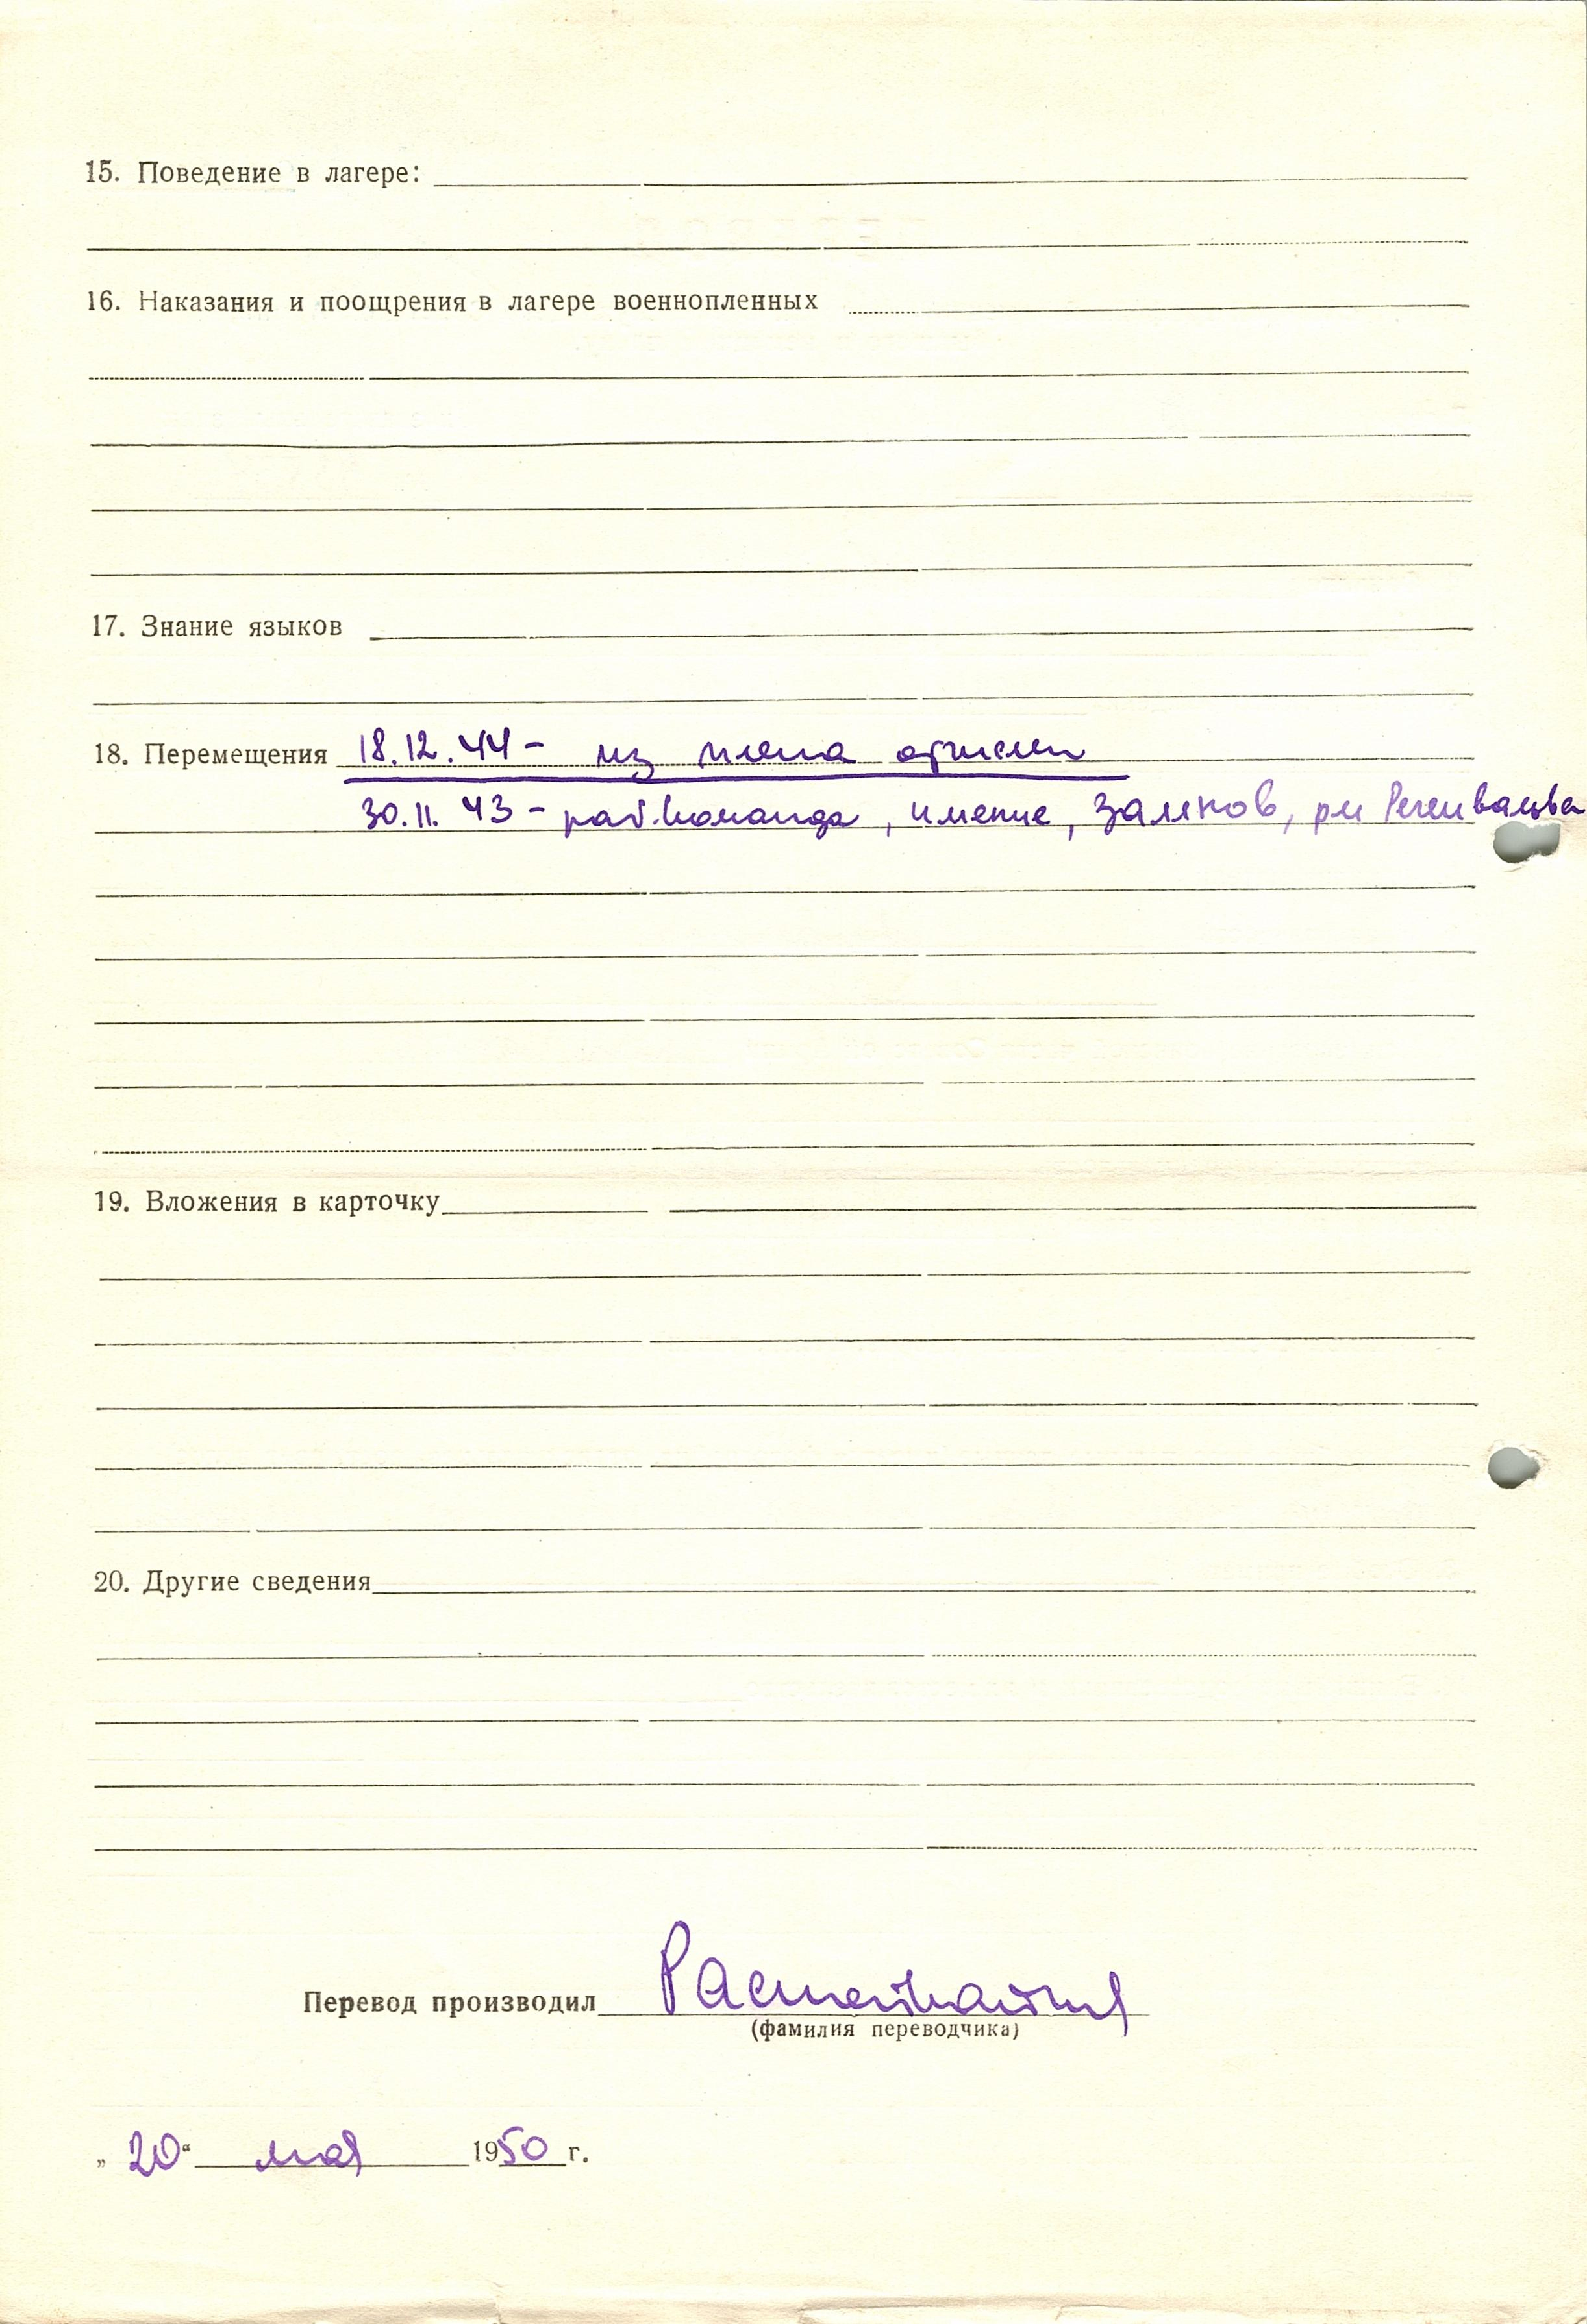 15. Поведение в лагере:
16. Наказания и поощрения в лагере военнопленных
17. Знание языков
18. Перемещения 18.12.44 - из плена отпущен
30.11.43 - раб. команда, имение, Залнов, рн Регенвальде
19. Вложения в карточку
20. Другие сведения
Перевод производил
(фамилия переводчика)
„ 20 “ мая 1950 г.